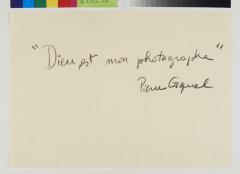 "Dieu est mon photographe"
Pierre